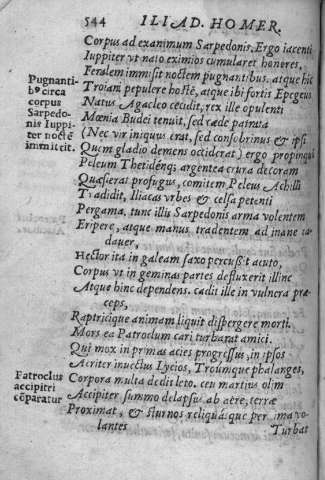 544 ILIAD. HOMER.
Corpus ad exanimum Sarpedonis. Ergo iacenti
Iuppiter vt nato eximios cumularet honores,
Feralem immisit noctem pugnantibus. atque hic
Pugnanti-
b9 circa
corpus
Sarpedo-
nis Iuppi-
ter noctē
immitit.
Troiani pepulere hostē, atque ibi fortis Epegeus
Natus Agacleo cecidit, rex ille opulenti
Mœnia Budei tenuit, sed cæde patrata
(Nec vir iniquus erat, sed consobrinus & ipsi
Quem gladio demens occiderat) ergo propinqui
Peleum Thetidénq; argentea crura decoram
Quæsierat profugus, comitem Peleus Achilli
Tradidit, Iliacas vrbes & celsa petenti
Pergama, tunc illi Sarpedonis arma volentem
Eripere, atque manus tradentem ad inane ca-
dauer,
Hector ita in galeam saxo percussit acuto,
Corpus vt in geminas partes defluxerit illinc
Atque hinc dependens. cadit ille in vulnera præ-
ceps,
Raptricique animam liquit dispergere morti.
Mors ea Patroclum cari turbarat amici.
Qui mox in primas acies progressus, in ipsos
Acriter inuectus Lycios, Troumque phalanges,
Patroclus
accipitri
cōparatur
Corpora multa dedit leto. ceu martius olim
Accipiter summo delapsus ab aëre, terræ
Proximat, & sturnos reliquá. que per ima vo-
lantes
Turbat